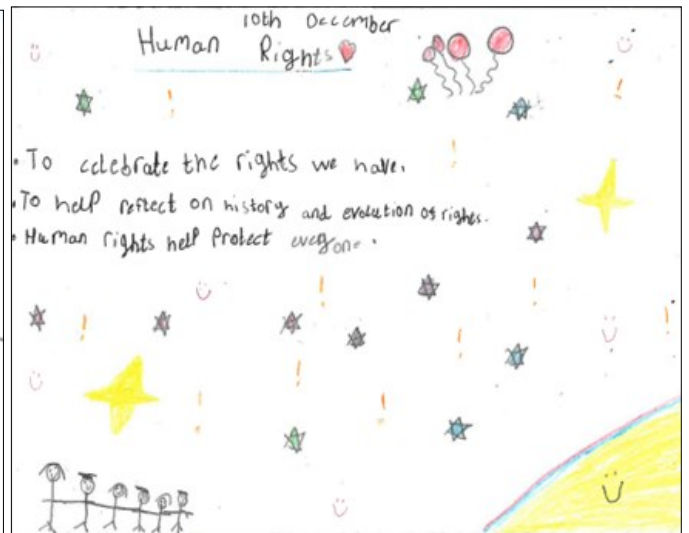 10th December
Human Rights
• To celebrate the rights we have.
• To help reflect on history and evolution of rights.
• Human rights help Protect everyone.